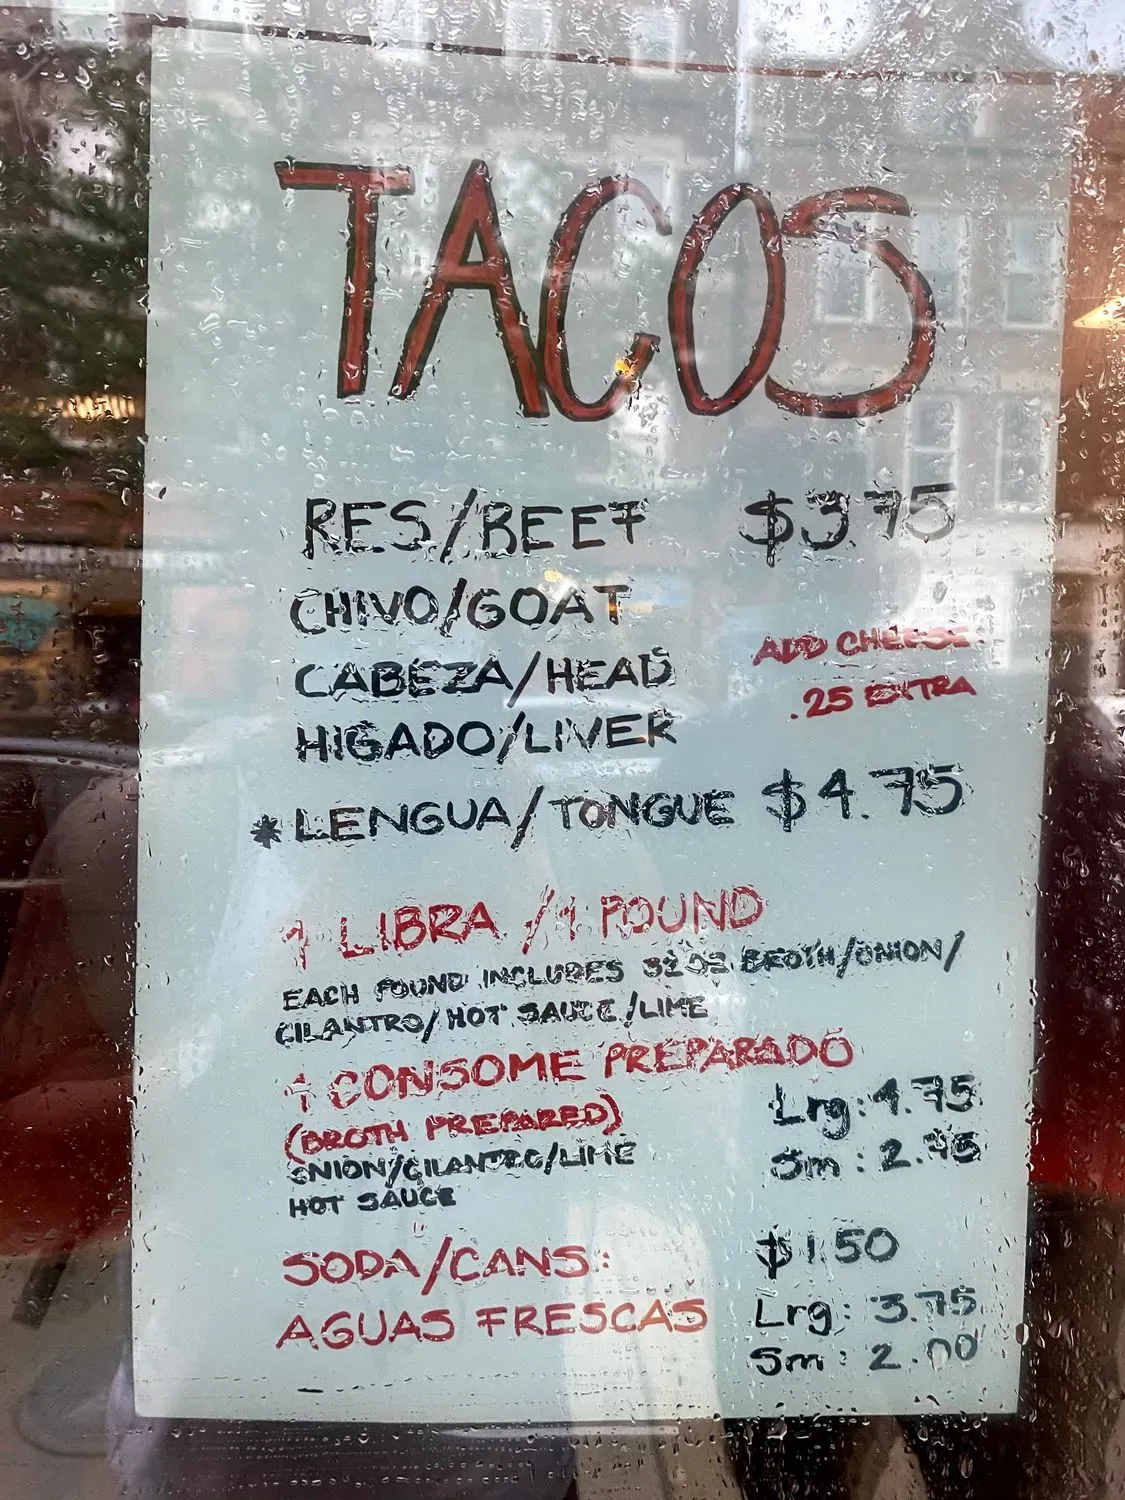 TACOS
RES/BEEF $3.75
CHIVO/GOAT
CABEZA/HEAD
ADD CHEESE
.25 EXTRA
HIGADO/LIVER
*LENGUA/TONGUE $4.75
1 LIBRA /1 POUND
EACH POUND INCLUDES 32 OZ BROTH/ONION/
CILANTRO/HOT SAUCE/LIME
1 CONSOME PREPARADO
(BROTH PREPARED)
Lrg: 4.75
ONION/CILANTRO/LIME
Sm: 2.75
HOT SAUCE
SODA/CANS: $1.50
AGUAS FRESCAS Lrg: 3.75
Sm: 2.00